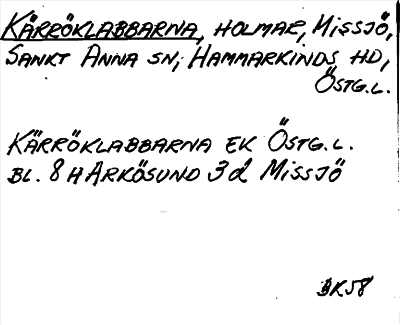 KÄRRÖKLABBARNA, HOLMAR, MISSJÖ,
SANKT ANNA SN, HAMMARKINDS HD,
ÖSTG.L.
KÄRRÖKLABBARNA EK ÖSTG.L.
BL. 8 H ARKÖSUND 3 d MISSJÖ
BK58